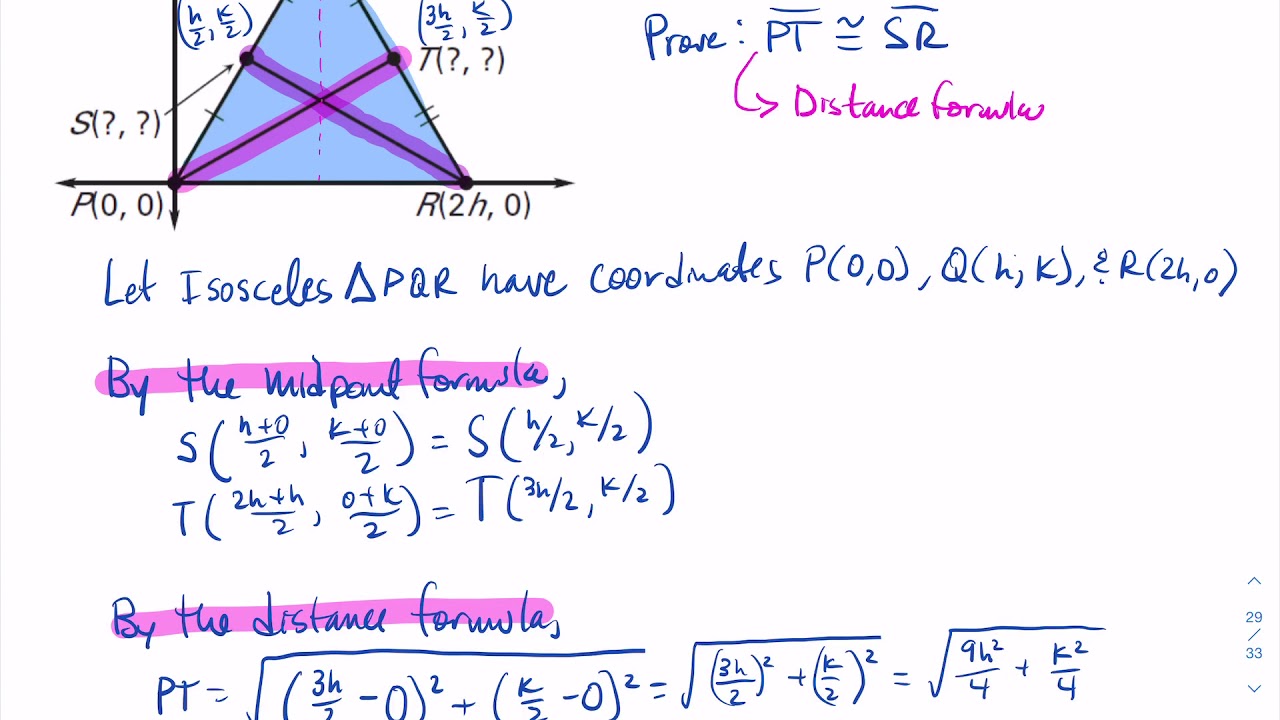 (h/2, k/2)
(3h/2, k/2)
Prove : PT ≅ SR
T(?, ?)
↳ Distance formula
S(?, ?)
P(0, 0)
R(2h, 0)
Let Isosceles ΔPQR have coordinates P(0,0), Q(h, K), & R(2h,0)
By the midpoint formula,
S((h+0)/2, (k+0)/2) = S(h/2, K/2)
T((2h+h)/2, (0+k)/2) = T(3h/2, K/2)
By the distance formula,
29
/
33
PT = √((3h/2 - 0)² + (k/2 - 0)²) = √((3h/2)² + (k/2)²) = √(9h²/4 + k²/4)